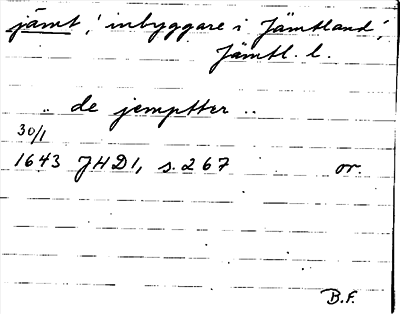 jämt, 'inbyggare i Jämtland',
Jämtl. l.
.. de jemptter ..
30/1
1643 JHD 1, s. 267 or.
B.F.